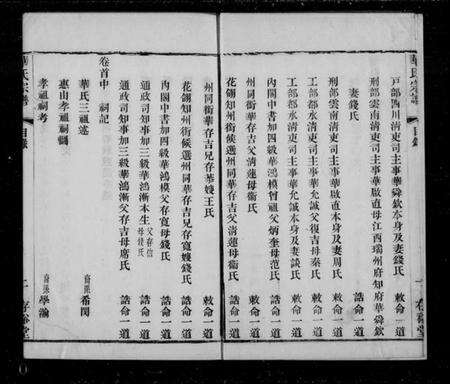 戶部四川淸吏司主事華舜欽本身及妻錢氏 敕命一道
刑部雲南淸吏司主事華啟直母江西瑞州府知府華舜欽妻錢氏 誥命一道
刑部雲南淸吏司主事華啟直本身及妻周氏 敕命一道
工部都水淸吏司主事華允誠父復吉母秦氏 敕命一道
工部都水淸吏司主事華允誠本身及妻談氏 敕命一道
內閣中書加四級華鴻模曾祖父炳奎母范氏 誥命一道
州同銜華存吉父淸蓮母衞氏 敕命一道
花翎知州銜候選州同華存吉父淸蓮母衞氏 誥命一道
州同銜華存吉兄存華嫂王氏 敕命一道
花翎知州銜候選州同華存吉兄存寬嫂錢氏 誥命一道
內閣中書加四級華鴻模父存寬母錢氏 誥命一道
通政司知事加三級華鴻漸本生父存信母錢氏 誥命一道
通政司知事加三級華鴻漸父存吉母席氏 誥命一道
卷首中 祠記
華氏三祖述 裔孫希閎
惠山孝祖祠
孝祖祠考 裔孫學瀚
華氏宗譜
目錄
存裕堂